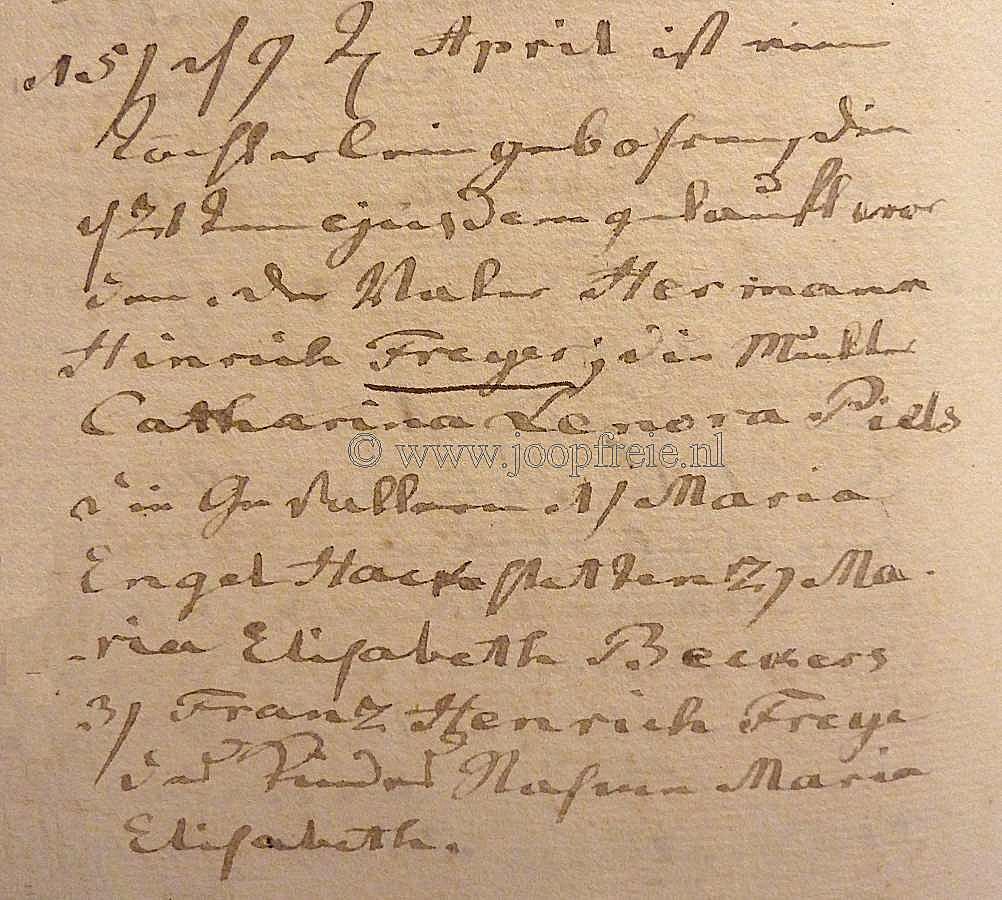 15) d 9 t April ist ein
Töchterlein gebohren, den
d 21ten ejusdem getauft wor
den. der Vater Hermann
Hinrich Freyer, die Mutter
Catharina Lenora Piels
© www.joopfreie.nl
die Gevattern 1) Maria
Engel Hackestetten 2, Ma-
-ria Elisabeth Beckers
3) Franz Henrich Freye
des Kindes Nahmen Maria
Elisabeth.